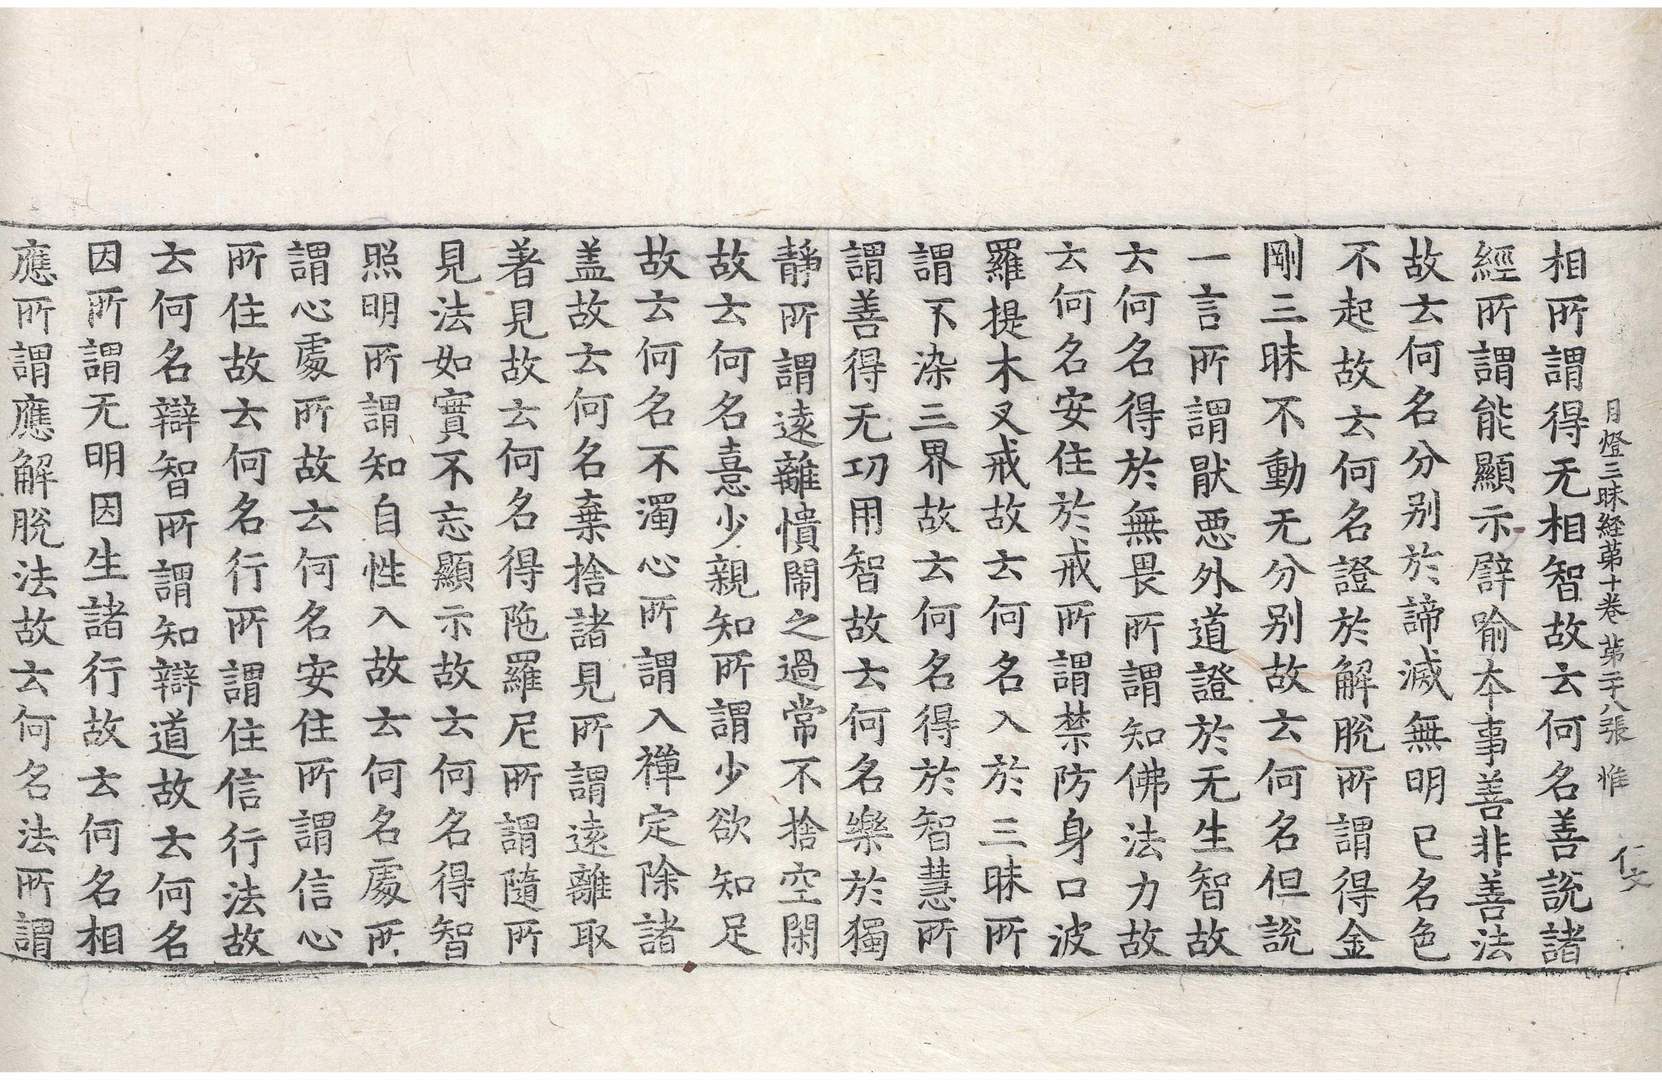 月燈三昧経苐十卷 苐二十八張 惟
仁文
相所謂得无相智故云何名善說諸
經所謂能顯示譬喻本事善非善法
故云何名分别於諦滅無明已名色
不起故云何名證於解脫所謂得金
剛三昧不動无分别故云何名但說
一言所謂猒惡外道證於无生智故
云何名得於無畏所謂知佛法力故
云何名安住於戒所謂禁防身口波
羅提木叉戒故云何名入於三昧所
謂不染三界故云何名得於智慧所
謂善得无功用智故云何名樂於獨
靜所謂遠離憒鬧之過常不捨空閑
故云何名憙少親知所謂少欲知足
故云何名不濁心所謂入禪定除諸
盖故云何名棄捨諸見所謂遠離取
著見故云何名得陁羅尼所謂隨所
見法如實不忘顯示故云何名得智
照明所謂知自性入故云何名處所
謂心處所故云何名安住所謂信心
所住故云何名行所謂住信行法故
云何名辯智所謂知辯道故云何名
因所謂无明因生諸行故云何名相
應所謂應解脫法故云何名法所謂